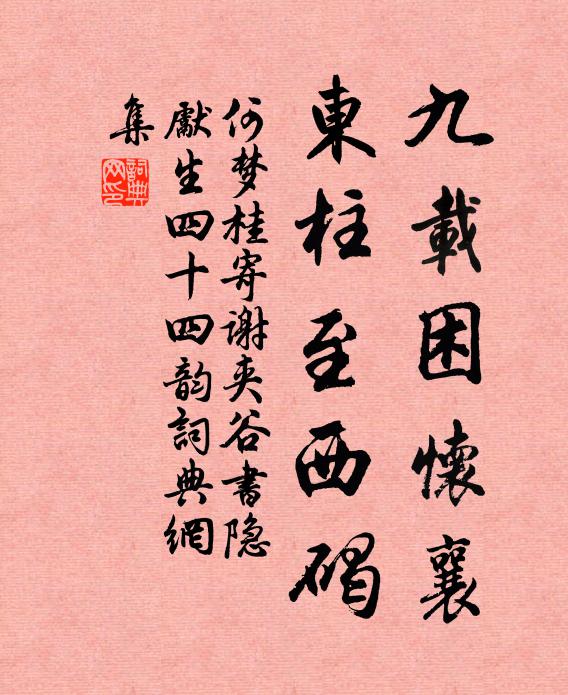 九載困懷襄
東柱至西碣
何梦桂寄谢夹谷書隐
獻生四十四韵詞典網
集
詞典网印